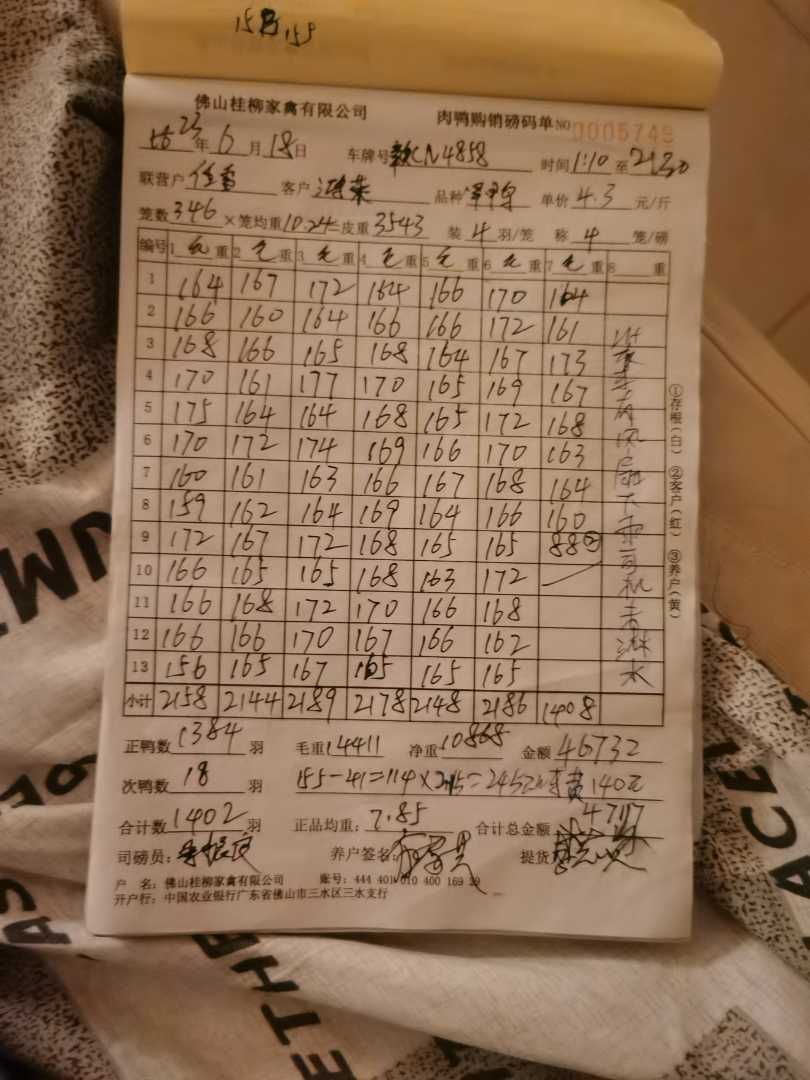 155
佛山桂柳家禽有限公司 肉鸭购销磅码单 NO 0005749
23年6月18日 车牌号 CN4858 时间1:10至21:30
联营户 客户 品种 单价4.3元/斤
笼数346×笼均重10.24=皮重3543 装4羽/笼 称4笼/磅
编号 1毛重 2毛重 3毛重 4毛重 5毛重 6毛重 7毛重 8重
1 164 167 172 164 166 170 164
2 166 160 164 166 166 172 161
3 168 166 165 168 164 167 173
4 170 161 177 170 165 169 167
5 175 164 164 168 165 172 168
6 170 172 174 169 166 170 163
7 160 161 163 166 167 168 164
8 159 162 164 169 164 166 160
9 172 167 172 168 165 165 88②
10 166 165 165 168 163 172
11 166 168 172 170 166 168
12 166 166 170 167 166 162
13 156 165 167 165 165 165
小计 2158 2144 2189 2178 2148 2186 1408
风扇大 司机 淋水
①存根(白) ②客户(红) ③养户(黄)
正鸭数1384羽 毛重14411 净重10868 金额46732
次鸭数18羽 155-41=114×2.15=245元 140元
合计数1402羽 正品均重:7.85 合计总金额
司磅员: 养户签名: 提货
户 名:佛山桂柳家禽有限公司 账号:444 401 010 400 169 29
开户行:中国农业银行广东省佛山市三水区三水支行